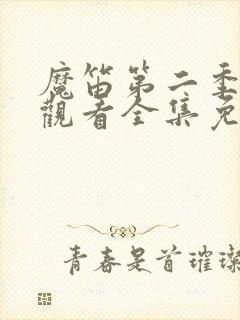 魔笛第二季
觀看全集免
青春是首璀璨